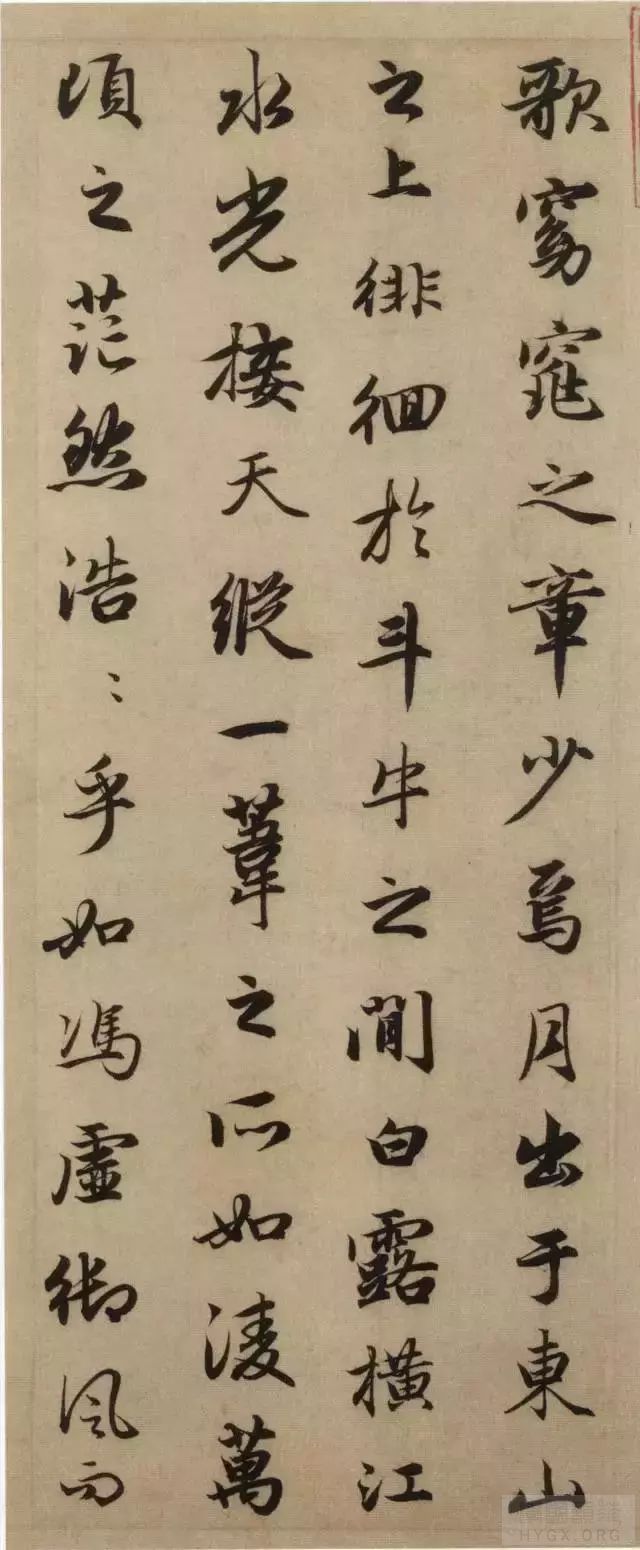 歌窈窕之章少焉月出于東山
之上徘徊於斗牛之間白露橫江
水光接天縱一葦之所如淩萬
頃之茫然浩〻乎如馮虛御風而
HYGX.ORG